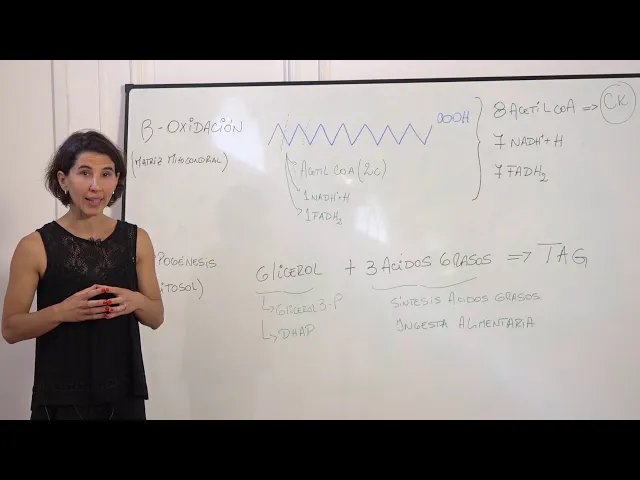 β-OXIDACIÓN
(MATRIZ MITOCONDRIAL)
COOH
ACETIL COA (2C)
1 NADH+H
1 FADH2
8 ACETIL COA => CK
7 NADH+H
7 FADH2
POGENESIS
ITOSOL)
GLICEROL + 3 ACIDOS GRASOS => TAG
GLICEROL 3-P
DHAP
SINTESIS ACIDOS GRASOS
INGESTA ALIMENTARIA